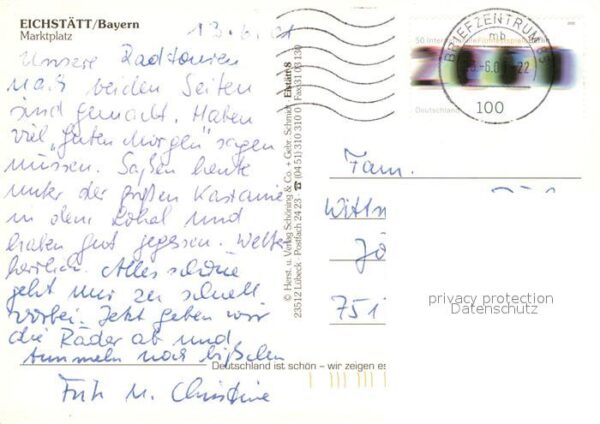 EICHSTÄTT/Bayern
Marktplatz
13.6.01
Unsere Radtouren
nach beiden Seiten
sind gemacht. Haben
viel "Guten Morgen" sagen
müssen. Saßen heute
unter der großen Kastanie
in dem Lokal und
haben gut gegessen. Wetter
herrlich. Alles schöne
geht nur zu schnell
vorbei. Jetzt geben wir
die Räder ab und
bummeln noch bißchen
Fritz u. Christine
© Herst. u. Verlag Schöning & Co. + Gebr. Schmidt
23512 Lübeck · Postfach 24 23 · ☎ (04 51) 310 310 0
Deutschland ist schön – wir zeigen es
50 Internationale Filmfestspiele Berlin
Deutschland
100
BRIEFZENTRUM
mb
Fam.
751
privacy protection
Datenschutz